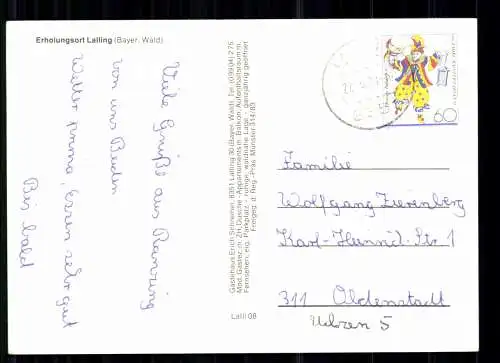 Erholungsort Lalling (Bayer. Wald)
Viele Grüße aus Ranzing
von uns Beiden
Wetter prima, Essen sehr gut
Bis bald
Gästehaus Erich Schreiner, 8351 Lalling 30 (Bayer. Wald), Tel. (09904) 275
Mod. Gästez. m. ZH, Dusche - Appartements m. Balkon, Aufenthaltsraum m.
Fernsehen, eig. Parkplatz - ruhige, waldnahe Lage - ganzjährig geöffnet
Freigeg. d. Reg.-Präs. Münster 314/83
Lalli 08
60
Familie
Wolfgang Zierenberg
Karl-Heinrid-Str 1
311 Oldenstadt
Uelzen 5